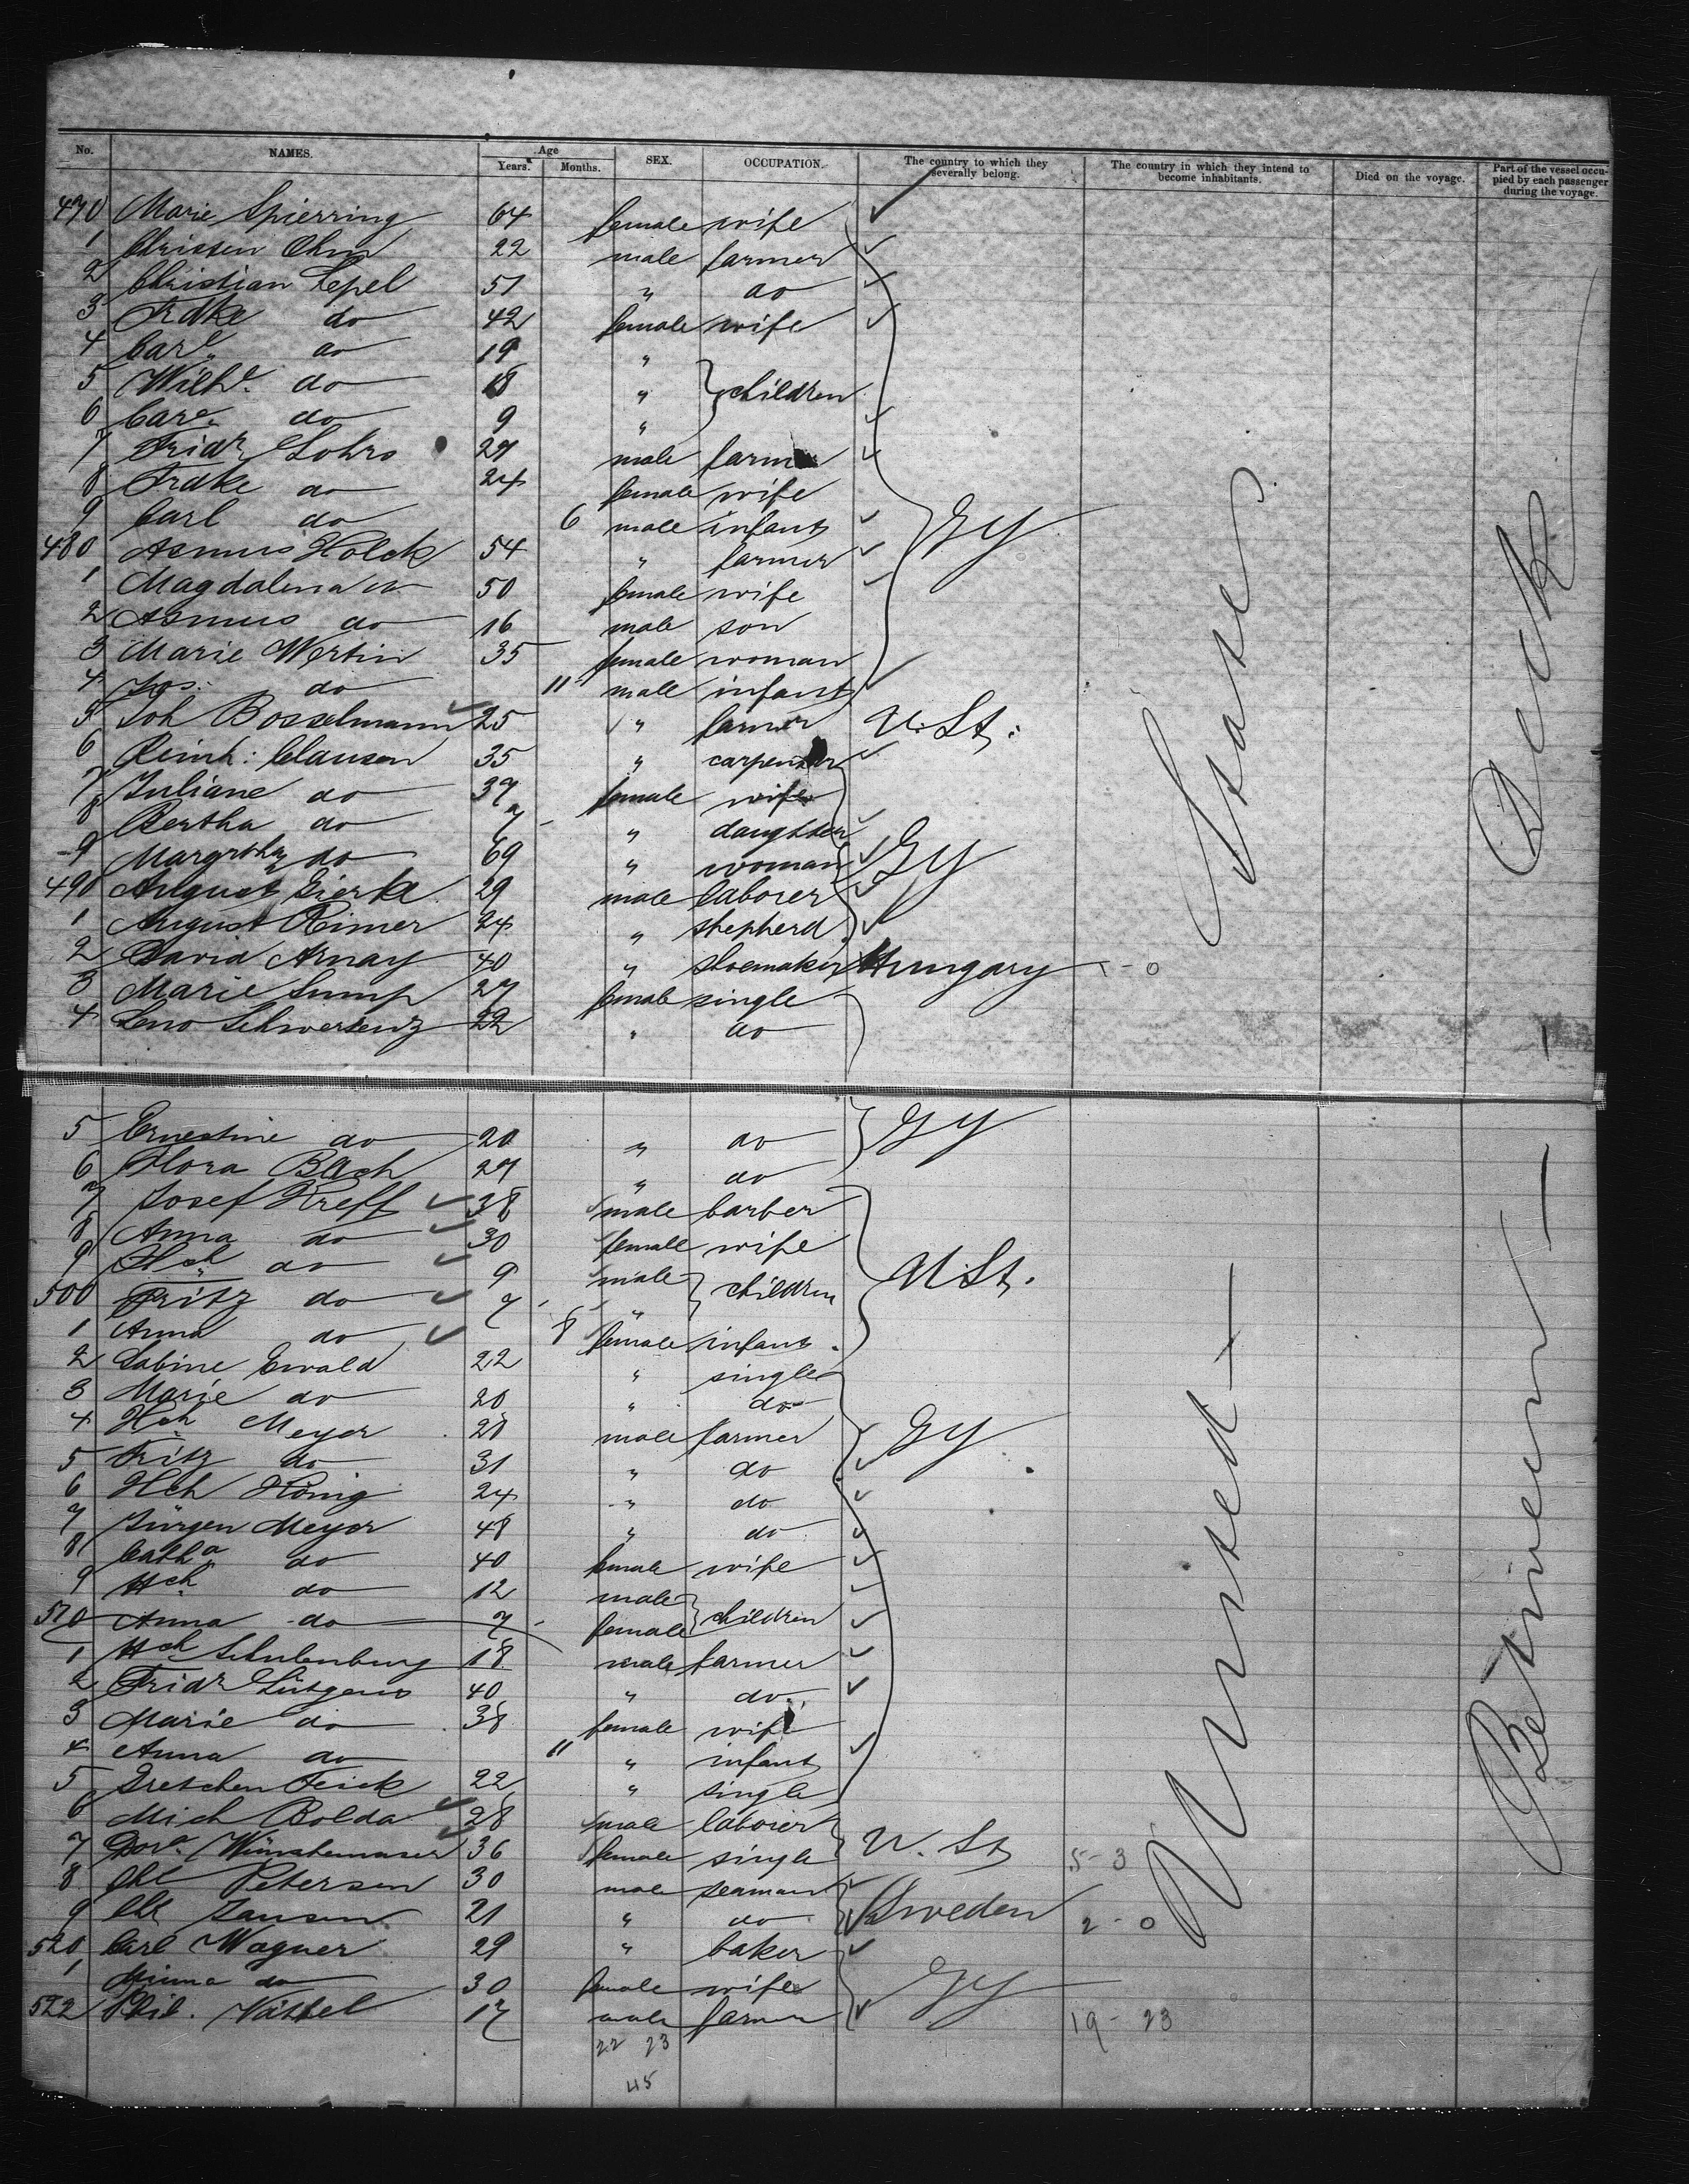 No. NAMES. Age Years. Months. SEX. OCCUPATION. The country to which they severally belong. The country in which they intend to become inhabitants. Died on the voyage. Part of the vessel occupied by each passenger during the voyage.
470 Marie Spierring 64 female wife
1 Christen Ohm 22 male farmer
2 Christian Lepel 51 " do
3 Frdke do 42 female wife
4 Carl. do 19 "
5 Wilhe. do 18 " } children
6 Care. do 9 "
7 Fridr Lohrs 27 male farmer
8 Frdke do 24 female wife
9 Carl do 6 male infant GY
480 Asmus Holck 54 " farmer
1 Magdalena do 50 female wife
2 Asmus do 16 male son
3 Marie Wertin 35 female woman
4 Jos: do 11 male infant
5 Joh Bosselmann 25 " farmer U. St:
6 Reinh: Clausen 35 " carpenter
7 Juliane do 37 female wife
8 Bertha do 7 " daughter
9 Margrtha do 69 " woman GY
490 August Gierke 29 male laborer
1 August Rimer 24 " shepherd
2 David Arnay 40 " shoemaker Hungary 1-0
3 Marie Sump 27 female single
4 Leno Schwersenz 22 " do
5 Ernestine do 20 " do GY
6 Flora Bach 27 " do
7 Josef Kreff 38 male barber
8 Anna do 30 female wife
9 Hch do 9 male } children U.St.
500 Fritz do 7 "
1 Anna do 8 female infant.
2 Sabine Ewald 22 " single
3 Marie do 20 " do
4 Hch Meyer 28 male farmer GY
5 Fritz do 31 " do
6 Hch König 24 " do
7 Jürgen Meyer 48 " do
8 Catha do 40 female wife
9 Hch do 12 male } children
510 Anna do 7 female
1 Hch Schulenburg 18 male farmer
2 Fridr Lütgens 40 " do
3 Marie do 38 female wife
4 Anna do 11 " infant
5 Gretchen Feick 22 " single
6 Mich Bolda 28 male laborer
7 36 female single U. St 5-3
8 Petersen 30 male seaman
9 Jansen 21 " do Sweden 2-0
520 Carl Wagner 29 " baker
1 Minna do 30 female wife GY
522 Phil. 17 male farmer 19-23
22 23
45
United States
Between Deck